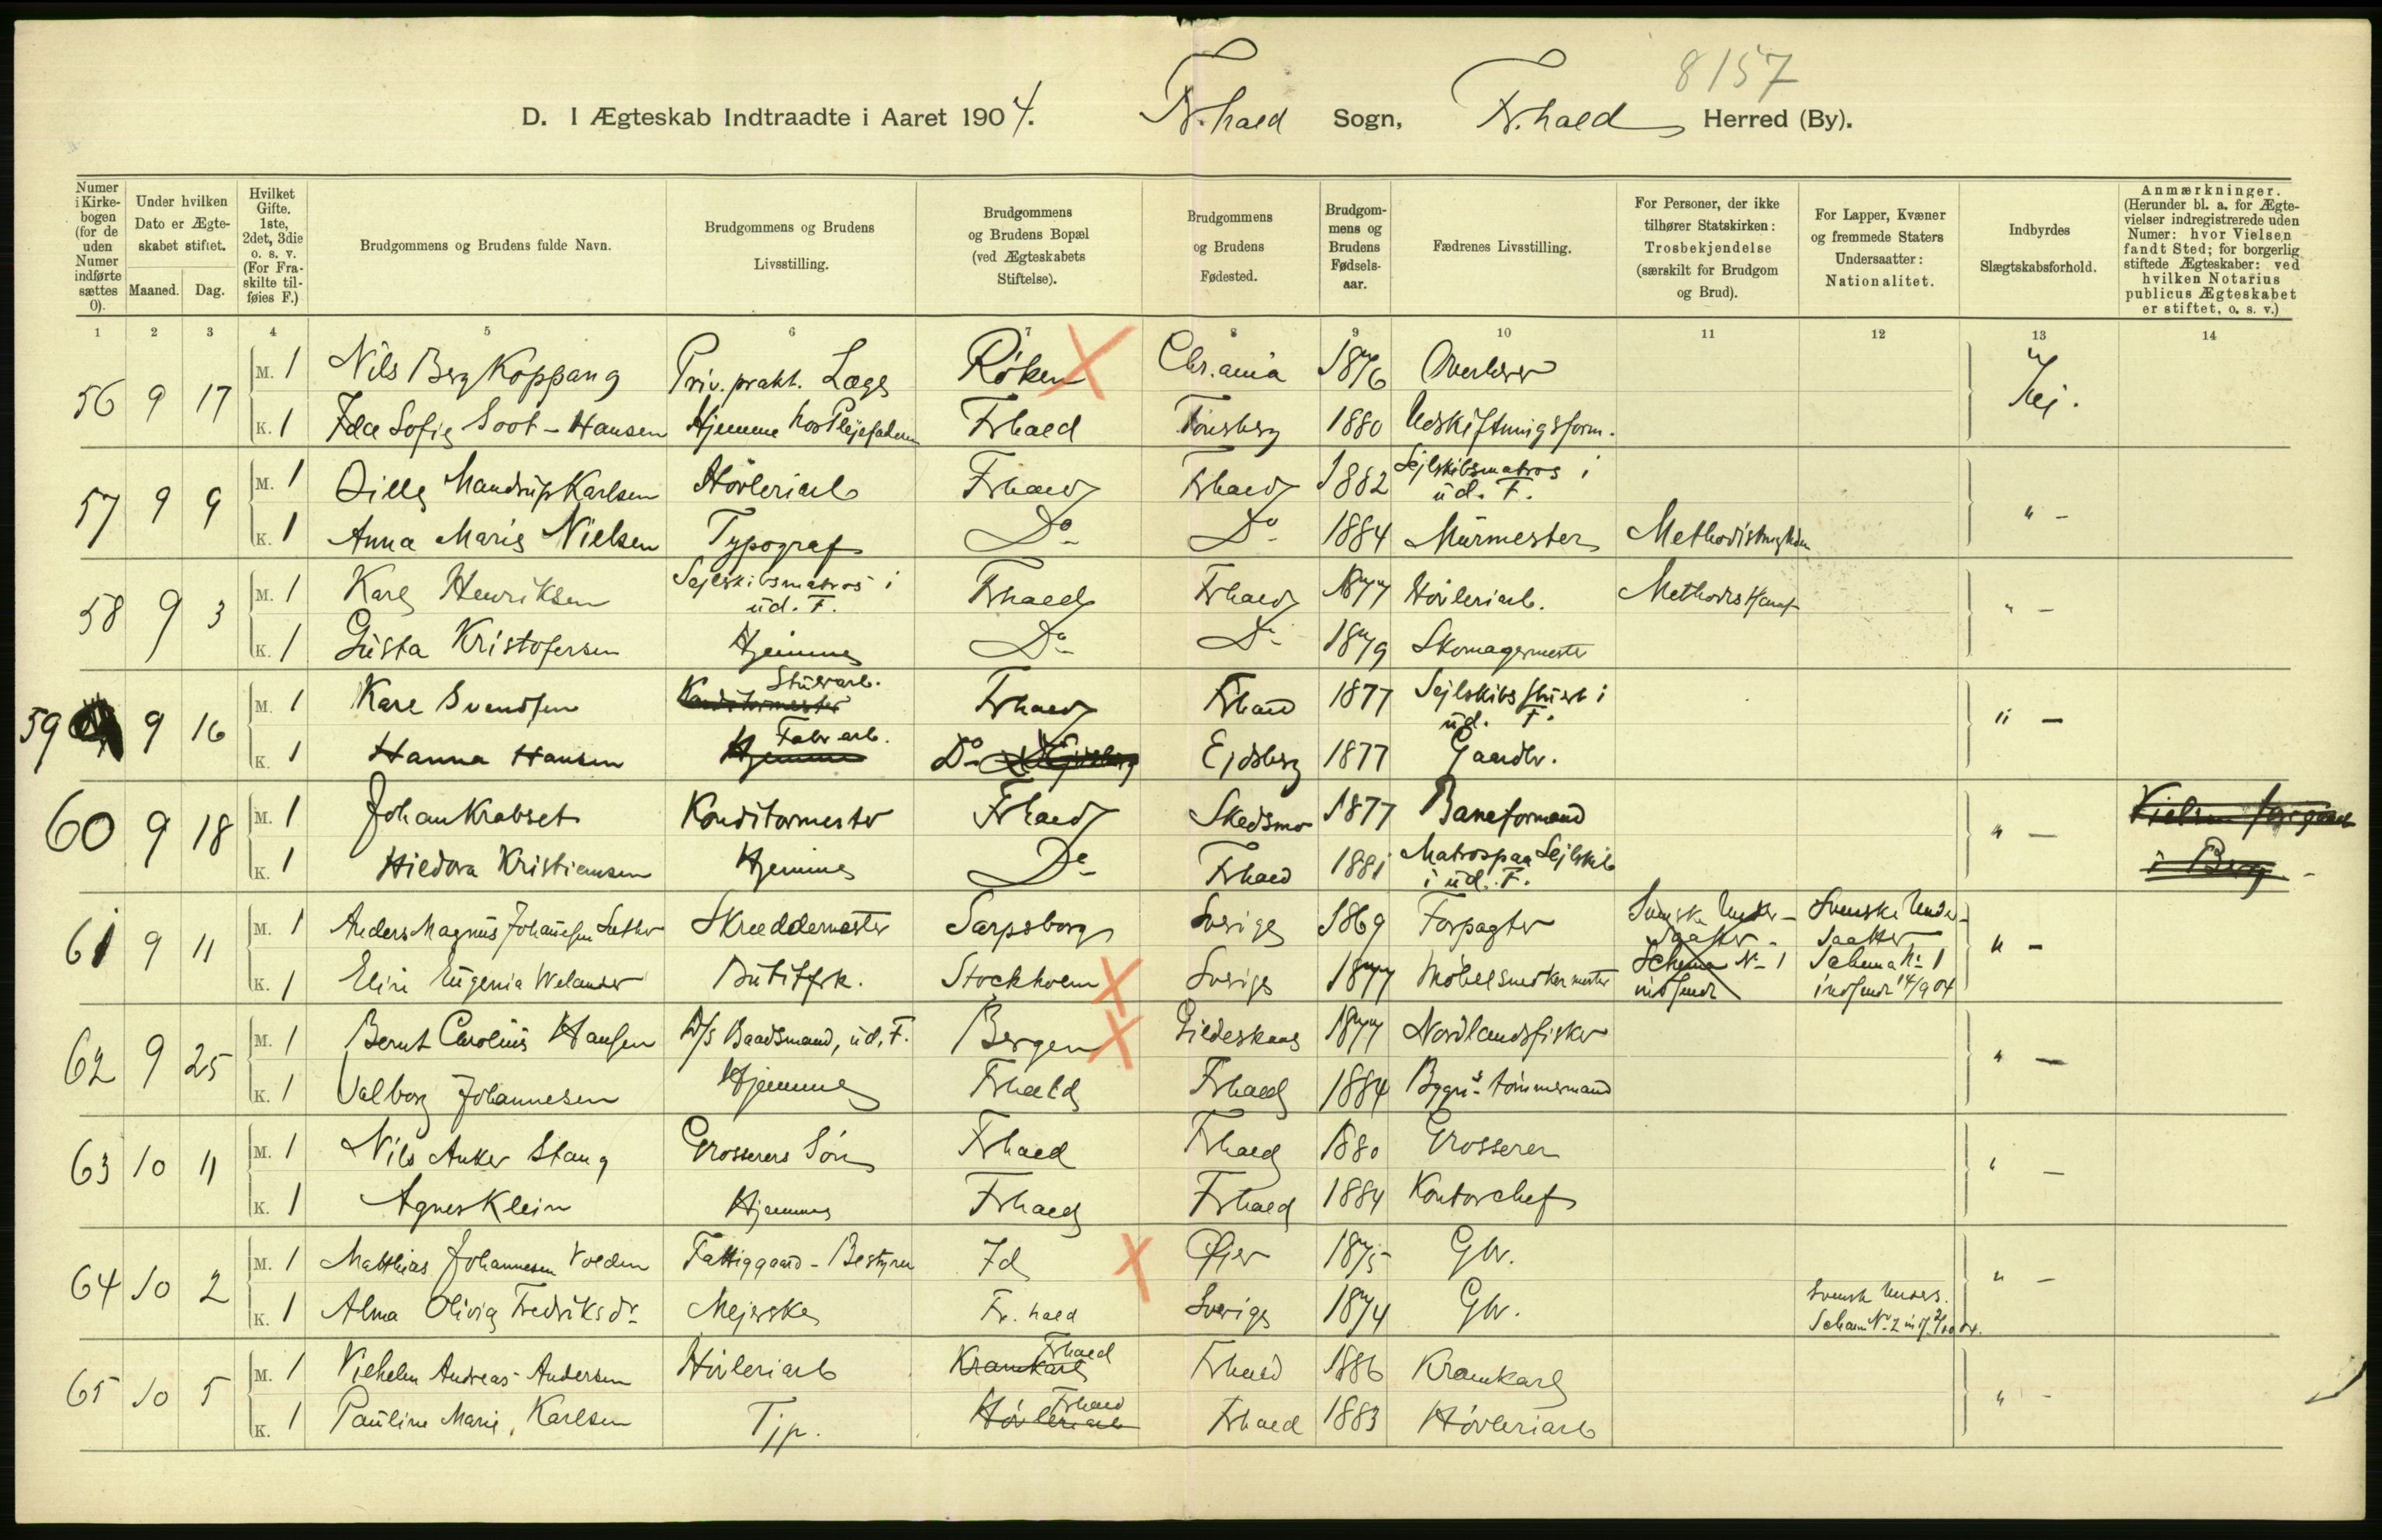 8157
D. I Ægteskab Indtraadte i Aaret 1904. Fr.hald Sogn, Fr.hald Herred (By).
Numer i Kirkebogen (for de uden Numer indførte sættes 0).
Under hvilken Dato er Ægteskabet stiftet.
Maaned. Dag.
Hvilket Gifte. 1ste, 2det, 3die o. s. v. (For Fraskilte tilføies F.)
Brudgommens og Brudens fulde Navn.
Brudgommens og Brudens Livsstilling.
Brudgommens og Brudens Bopæl (ved Ægteskabets Stiftelse).
Brudgommens og Brudens Fødested.
Brudgommens og Brudens Fødselsaar.
Fædrenes Livsstilling.
For Personer, der ikke tilhører Statskirken: Trosbekjendelse (særskilt for Brudgom og Brud).
For Lapper, Kvæner og fremmede Staters Undersaatter: Nationalitet.
Indbyrdes Slægtskabsforhold.
Anmærkninger. (Herunder bl. a. for Ægtevielser indregistrerede uden Numer: hvor Vielsen fandt Sted; for borgerlig stiftede Ægteskaber: ved hvilken Notarius publicus Ægteskabet er stiftet, o. s. v.)
1 2 3 4 5 6 7 8 9 10 11 12 13 14
56 9 17 M. 1 Nils Berg Koppang Priv. prakt. Læge Røken Chr.ania 1876 Overlærer Nej.
K. 1 Ida Sofie Soot-Hansen Hjemme hos Plejefaderen Frhald Tønsberg 1880 Udskiftningsform.
57 9 9 M. 1 Mandrup Karlsen Høvleriarb Frhald Frhald 1882 Sejlskibsmatros i ud. F. " -
K. 1 Anna Marie Nielsen Typograf Do Do 1884 Murmester
58 9 3 M. 1 Karl Henriksen Sejlskibsmatros i ud. F. Frhald Frhald 1877 Høvleriarb. " -
K. 1 Gusta Kristofersen Hjemme Do Do 1879 Skomagermester
59 9 16 M. 1 Karl Svendsen Konditormester Stuerarb. Frhald Frhald 1877 Sejlskibsstuert i ud. F. " -
K. 1 Hanna Hansen Hjemme Fabr arb. Do Ejdsberg 1877 Gaardbr.
60 9 18 M. 1 Johan Krabset Konditormester Frhald Skedsmo 1877 Baneformand " - i Berg
K. 1 Hildora Kristiansen Hjemme Do Frhald 1881 Matros paa Sejlskib i ud. F.
61 9 11 M. 1 Anders Magnus Johansen Skræddermester Sarpsborg Sverige 1869 Forpagter Svenske Undersaatter Schema No 1 indsendt Svenske Undersaatter Schema No 1 indsendt 14/9 04 " -
K. 1 Elin Eugenia Welander Butikfrk. Stockholm Sverige 1877 Møbelsnedkermester
62 9 25 M. 1 Bernt Carolius Hansen D/S Baadsmand, ud. F. Bergen Gildeskaal 1877 Nordlandsfisker " -
K. 1 Valborg Johannesen Hjemme Frhald Frhald 1884 Bygns tømmermand
63 10 11 M. 1 Nils Anker Stang Grosserers Søn Frhald Frhald 1880 Grosserer " -
K. 1 Agnes Klein Hjemme Frhald Frhald 1884 Kontorchef
64 10 2 M. 1 Matthias Johannesen Volden Fattiggaard-Bestyrer Id Øier 1875 Gbr. " -
K. 1 Alma Olivia Fredriksdr Mejerske Fr.hald Sverige 1874 Gbr. Svensk Unders.
65 10 5 M. 1 Vilhelm Andreas Andersen Høvleriarb Krankarl Frhald Frhald 1886 Krankarl " -
K. 1 Pauline Marie Karlsen Tjp. Høvleriarb Frhald Frhald 1883 Høvleriarb